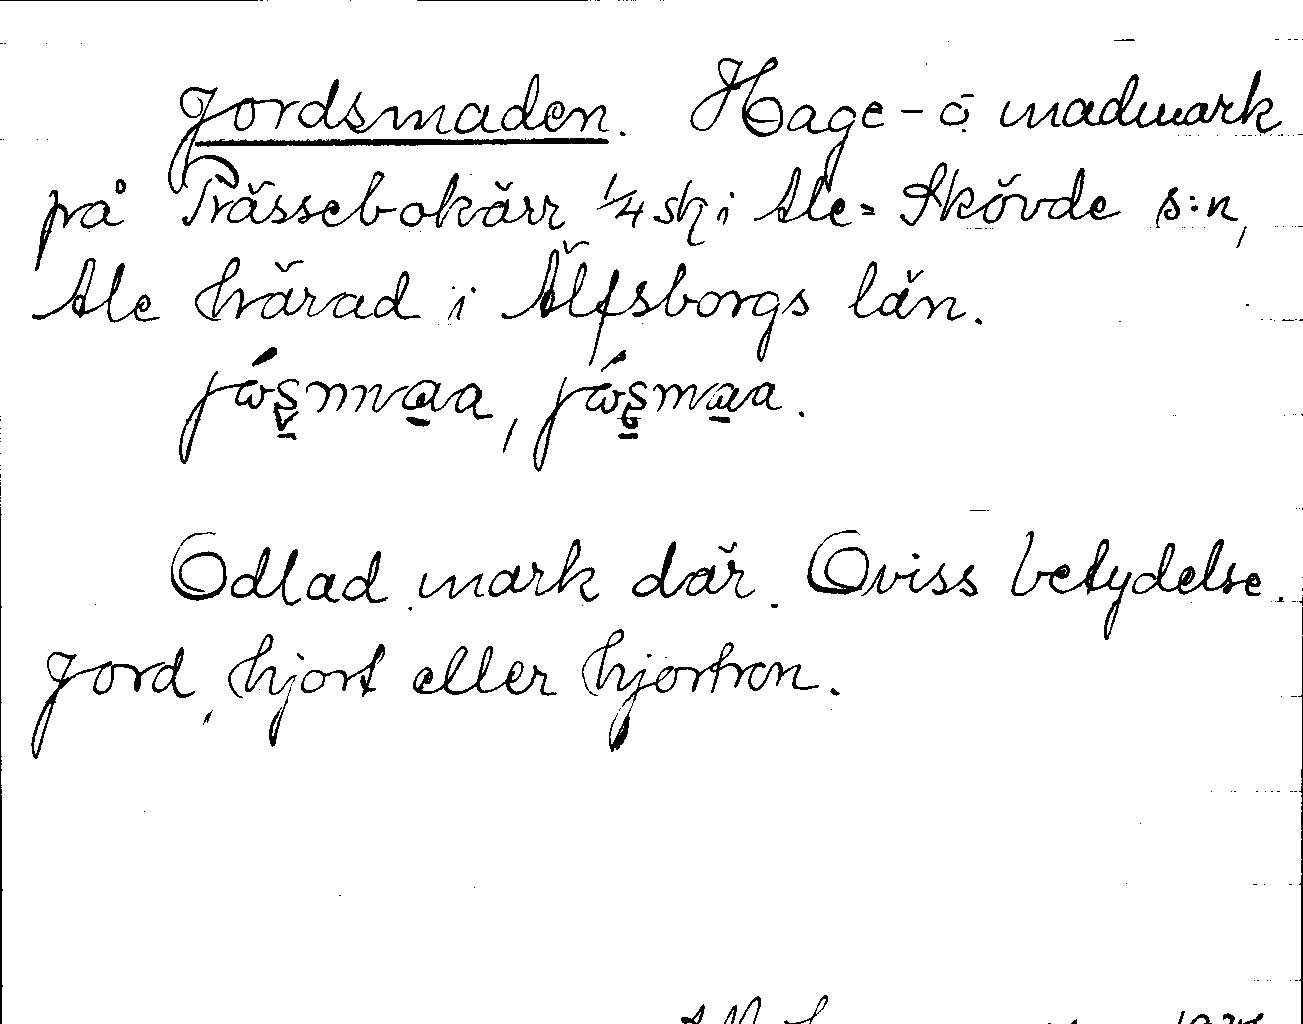 Jordsmaden. Hage- o. madmark
på Prässebokärr 1/4 sk i Ale-Skövde s:n,
Ale härad i Älfsborgs län.
Odlad mark där. Oviss betydelse.
Jord, hjort eller hjortron.